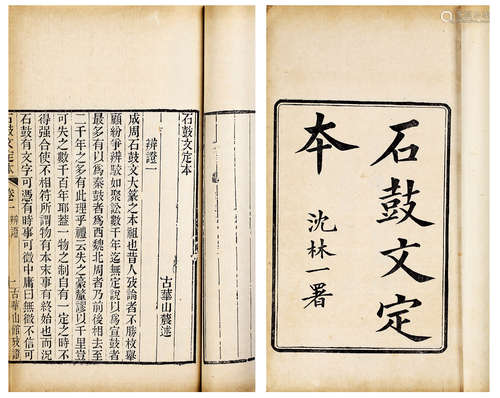 石鼓文定本
沈林一署
石鼓文定本
古華山農述
辨證一
成周石鼓文大篆之本祖也昔人攷論者不勝枚舉
顧紛爭辨駮如聚訟數千年迄無定說以爲宣鼓者
最多有以爲秦鼓者爲西魏北周者乃前後相去至
二千年之多有此理乎禮云失之豪釐謬以千里豈
可失之數千百年耶蓋一物之制自有一定之時不
得强合使不相符所謂物有本末事有終始也而況
石鼓有文字可憑有時事可徵中庸曰無徵不信可
石鼓文定本
卷一辨證
一
古華山館攷證